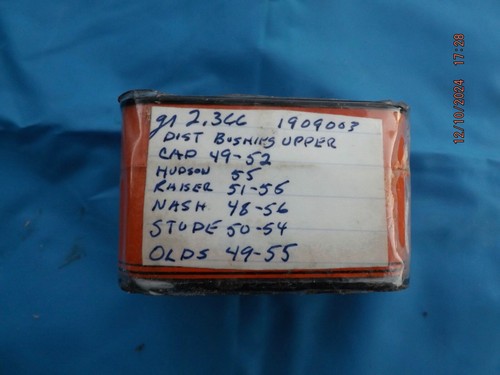 gr 2.366 1909003
DIST BUSHINS UPPER
CAD 49-52
HUDSON 55
KAISER 51-56
NASH 48-56
STUDE 50-54
OLDS 49-55
12/10/2024 17:28